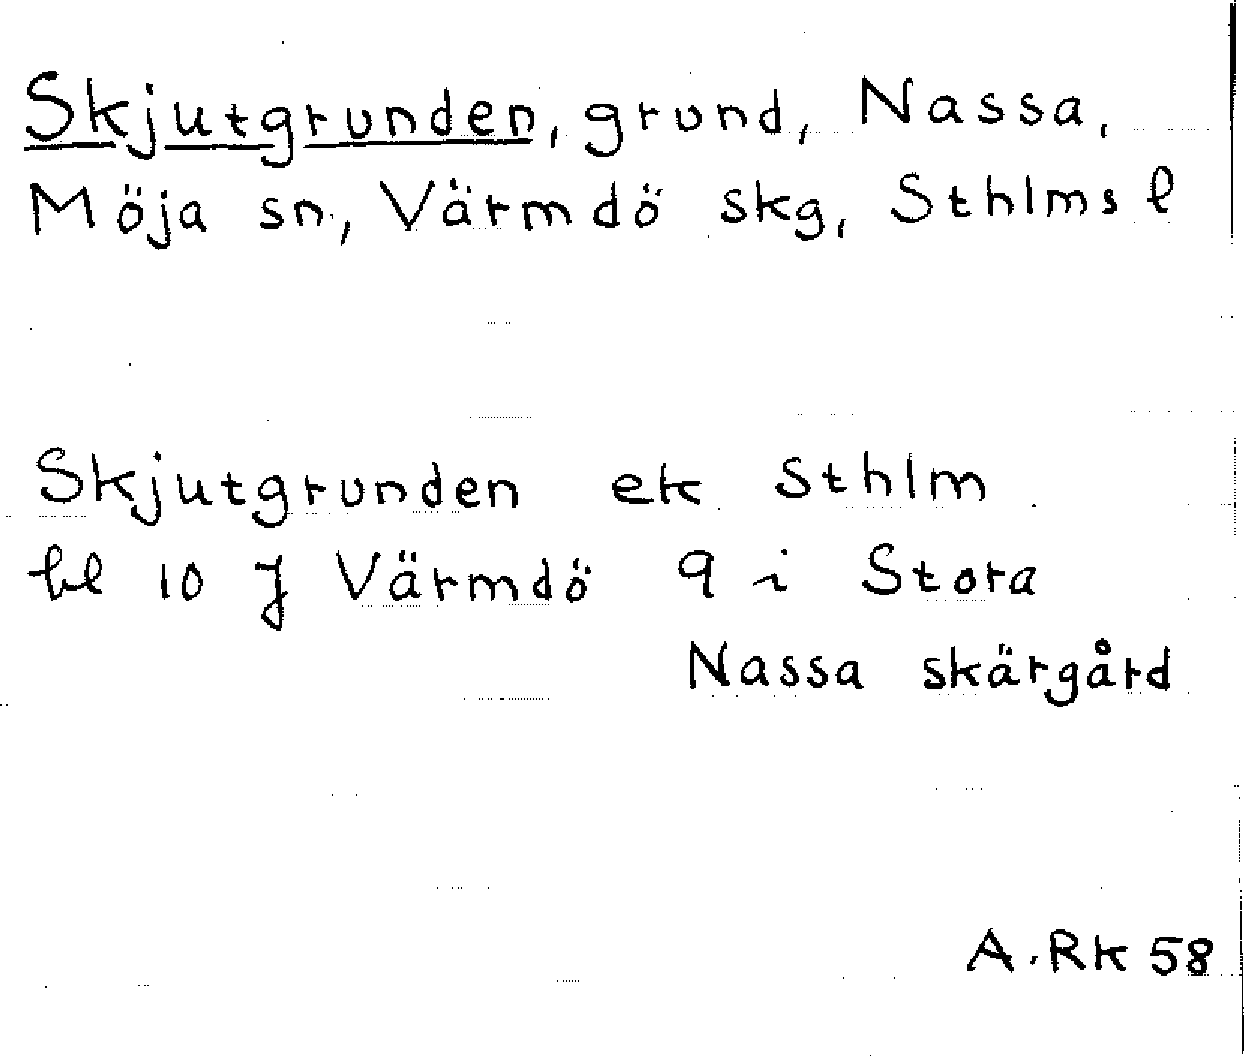 Skjutgrunden, grund, Nassa,
Möja sn, Värmdö skg, Sthlms l
Skjutgrunden ek Sthlm
bl 10 J Värmdö 9 i Stora
Nassa skärgård
A. Rk 58